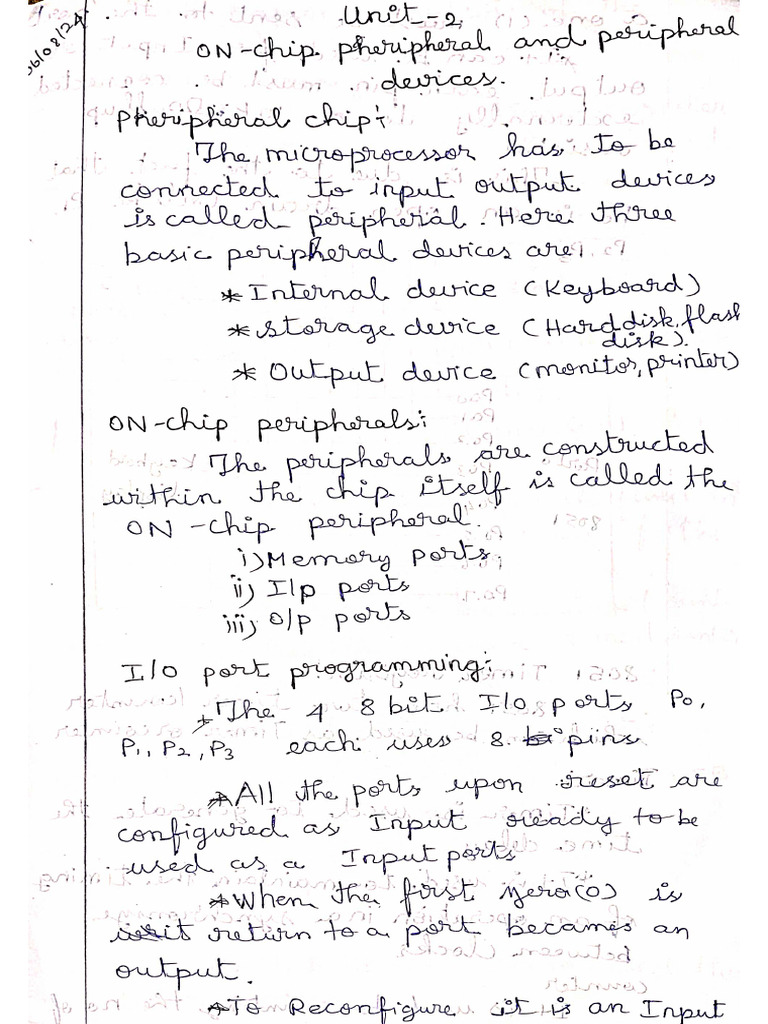 06/08/24
Unit-2
ON-chip pheripheral and peripheral
devices.
Pheripheral chip:
The microprocessor has to be
connected to input output devices
is called peripheral. Here three
basic peripheral devices are:
* Internal device (Keyboard)
* Storage device (Hard disk, flash
disk).
* Output device (monitor, printer)
ON-chip peripherals:
The peripherals are constructed
within the chip itself is called the
ON-chip peripheral.
i) Memory ports.
ii) I/p ports
iii) O/p ports
I/O port programming:
* The 4 8 bit I/O ports P0,
P1, P2, P3 each uses 8 pins
* All the ports upon reset are
configured as Input ready to be
used as a Input ports
* When the first zero(0) is
return to a port becames an
output.
* To Reconfigure it is an Input